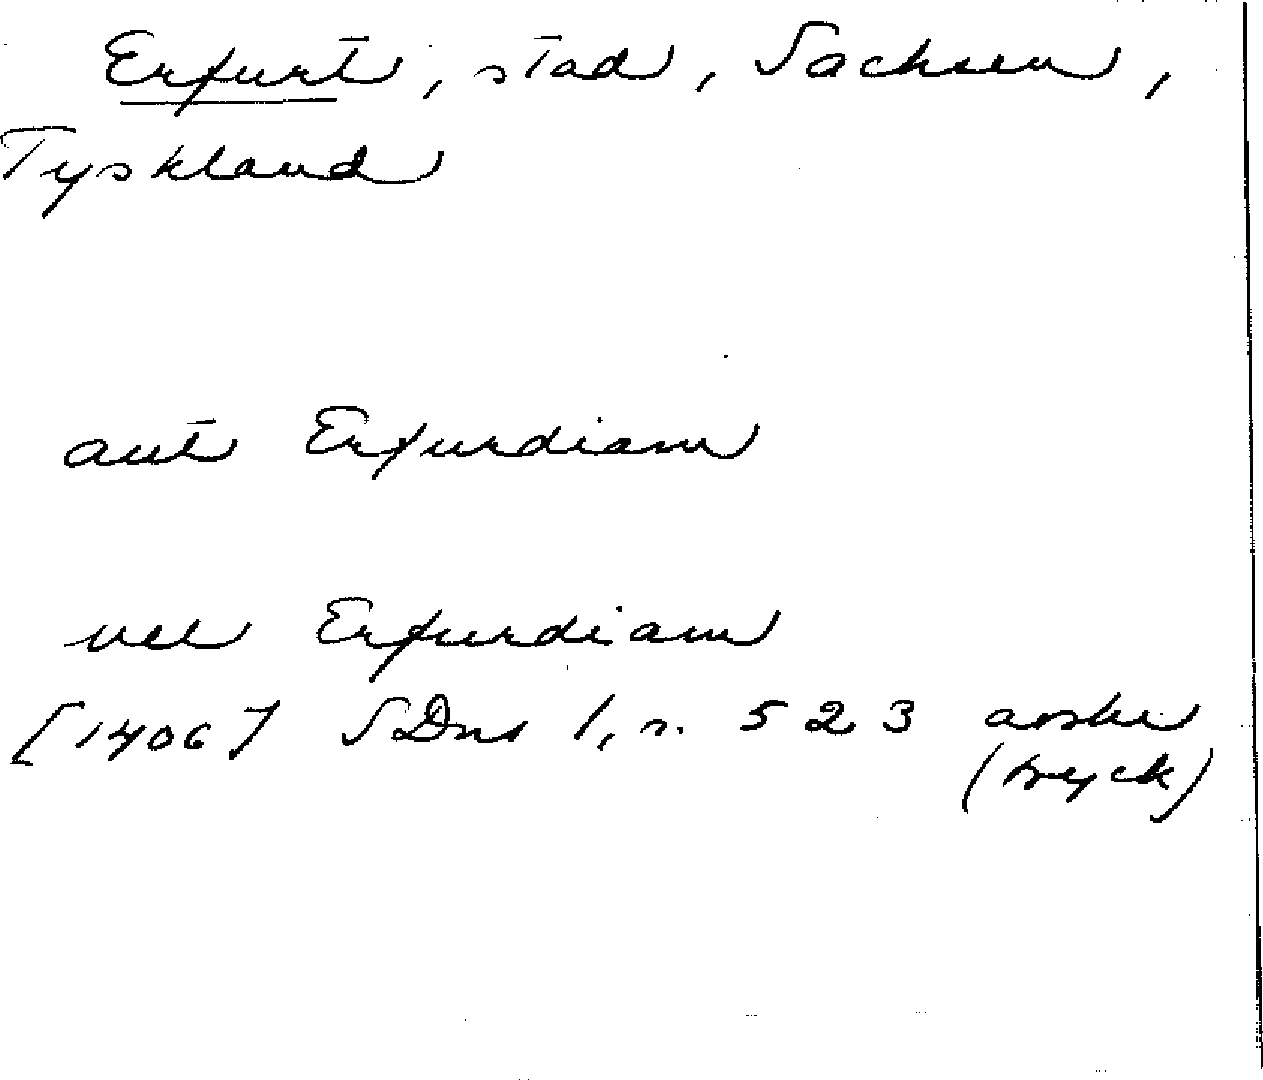 Erfurt, stad, Sachsen,
Tyskland
aut Erfurdiam
vel Erfurdiam
[1406] SDns 1, s. 523 avskr
(tryck)